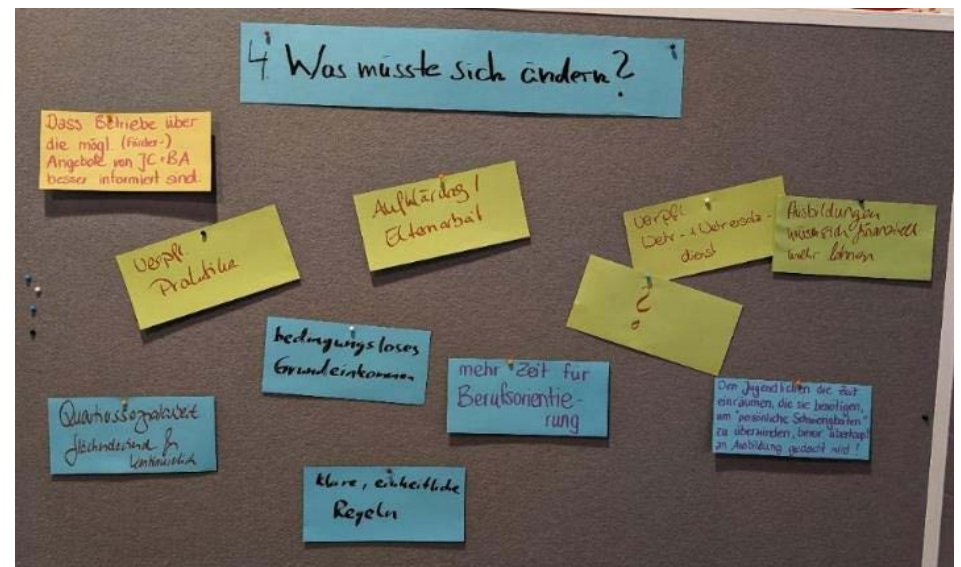 4. Was müsste sich ändern?
Dass Betriebe über
die mögl. (Förder-)
Angebote von JC+BA
besser informiert sind.
Verpfl.
Praktika
Aufklärung /
Elternarbeit
Verpfl.
Wehr- + Wehrersatz-
dienst
?
Ausbildungen
müssen sich finanziell
mehr lohnen
bedingungsloses
Grundeinkommen
mehr Zeit für
Berufsorientie-
rung
Quartiersozialarbeit
flächendeckend &
kontinuierlich
klare, einheitliche
Regeln
Den Jugendlichen die Zeit
einräumen, die sie benötigen,
um "persönliche Schwierigkeiten"
zu überwinden, bevor überhaupt
an Ausbildung gedacht wird!